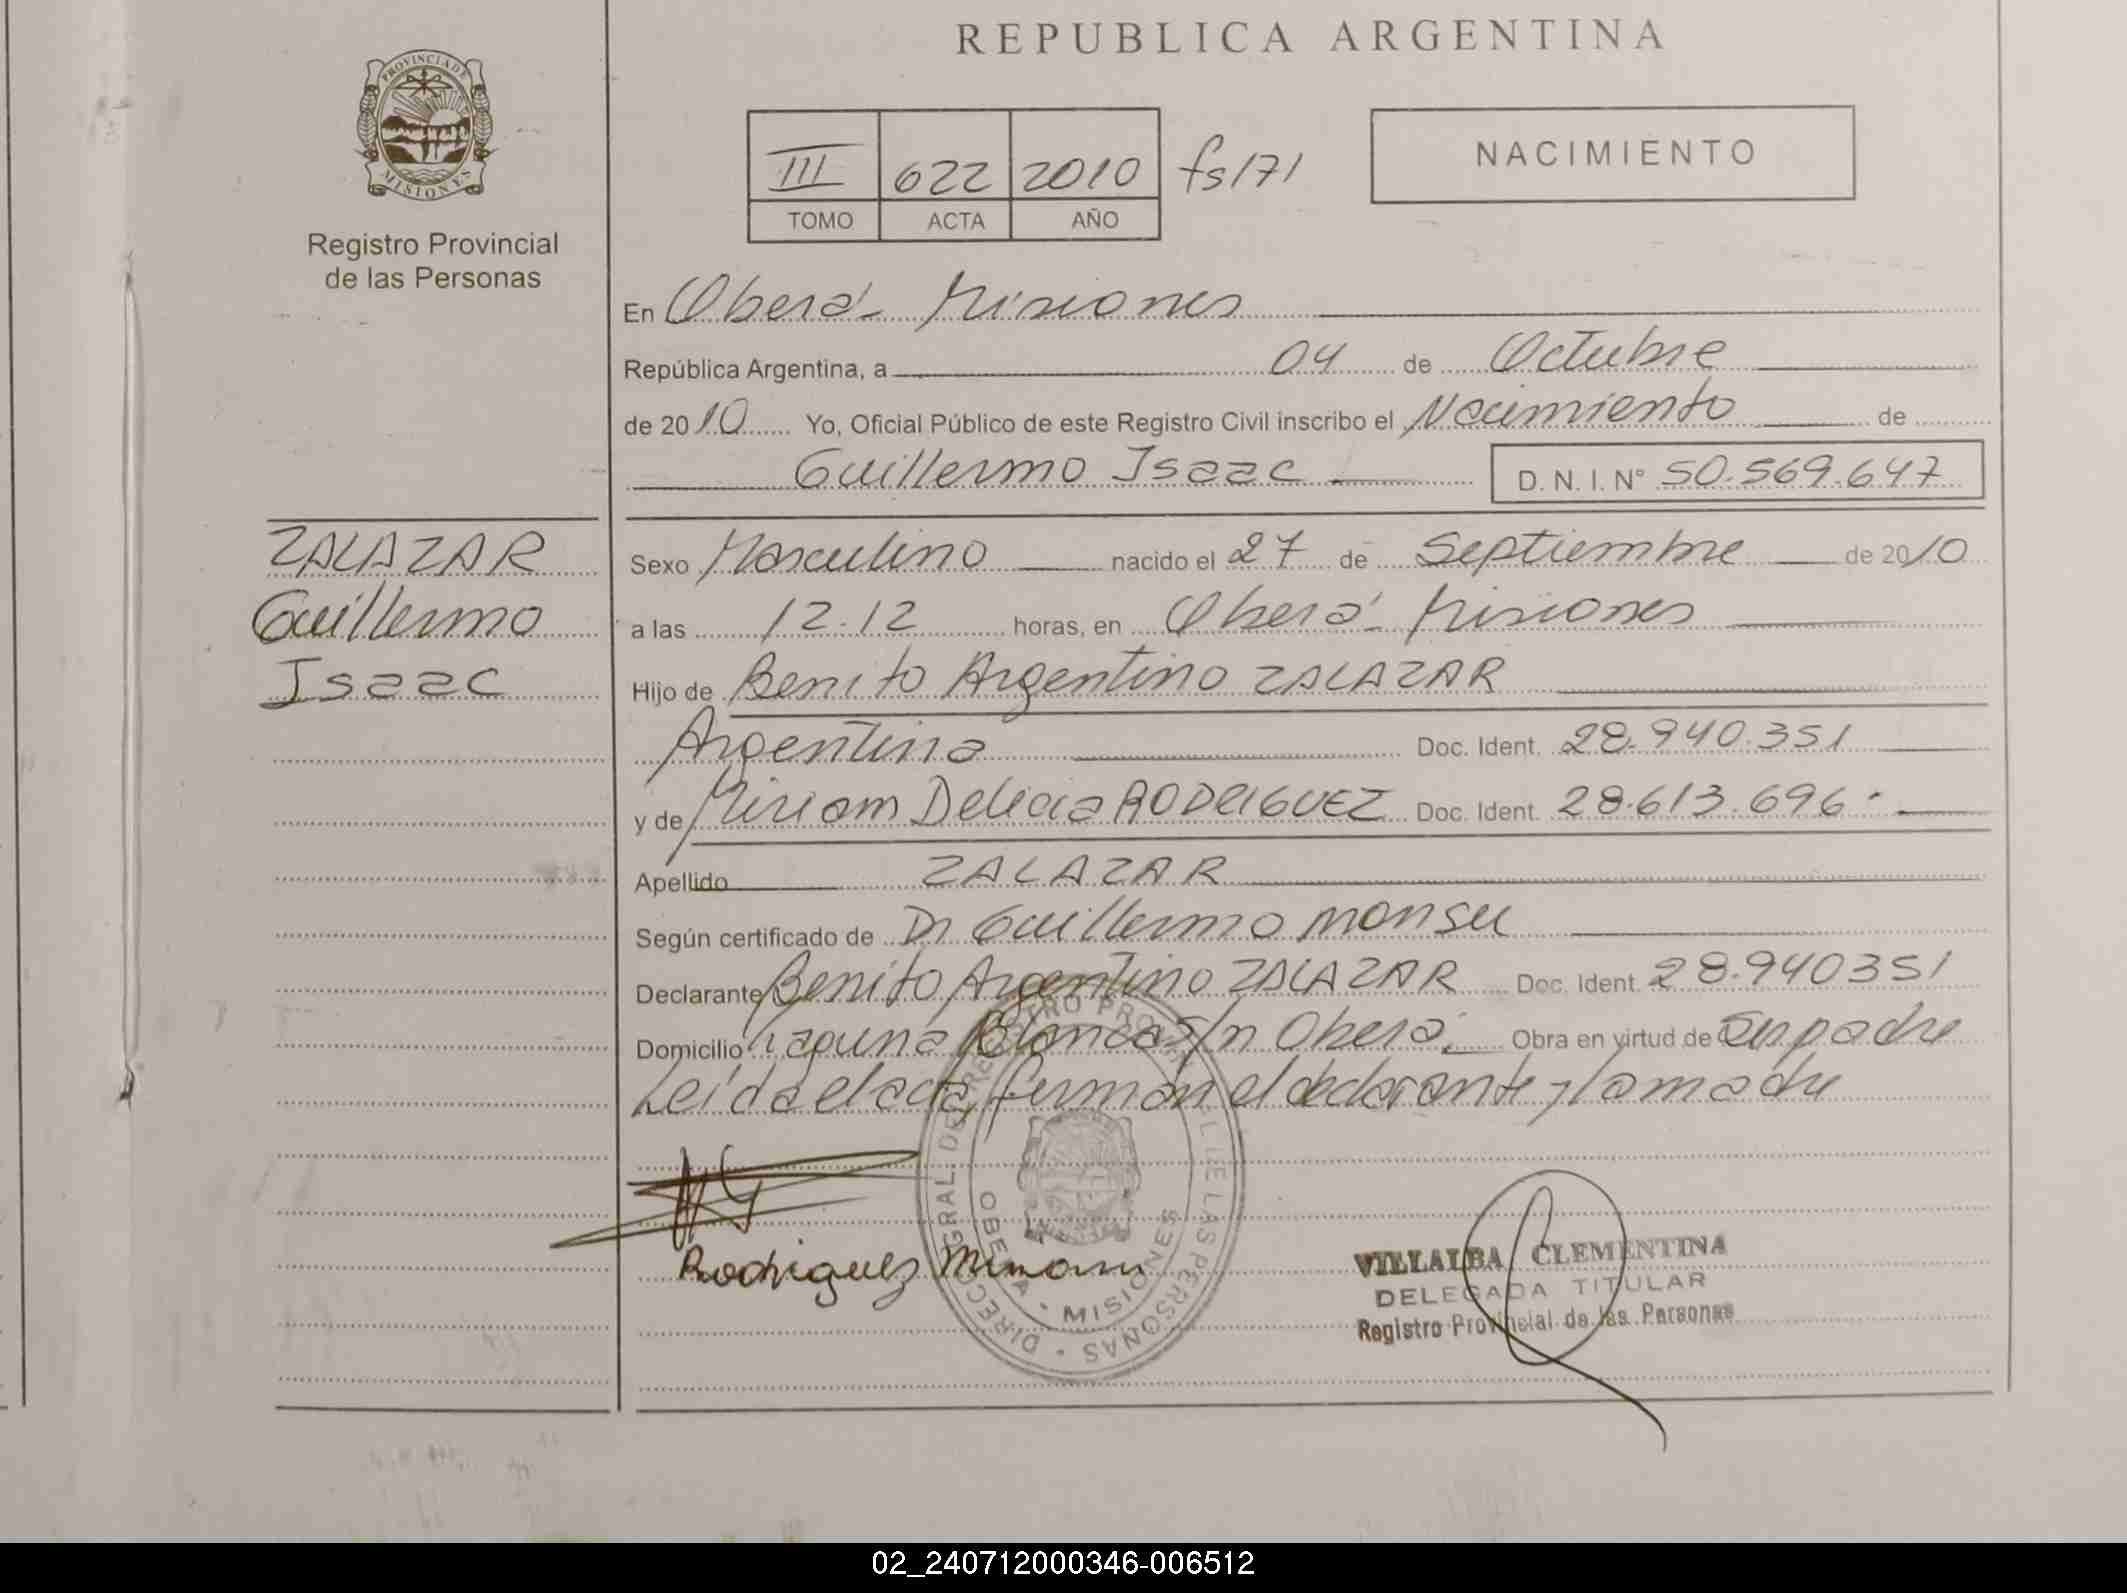 REPUBLICA ARGENTINA
PROVINCIA DE
MISIONES
Registro Provincial
de las Personas
III 622 2010 fs171
TOMO ACTA AÑO
NACIMIENTO
En Oberá - Misiones
República Argentina, a 04 de Octubre
de 2010 Yo, Oficial Público de este Registro Civil inscribo el Nacimiento de
Guillermo Isaac D. N. I. N° 50.569.647
ZALAZAR
Guillermo
Isaac
Sexo Masculino nacido el 27 de Septiembre de 2010
a las 12.12 horas, en Oberá - Misiones
Hijo de Benito Argentino ZALAZAR
Argentina Doc. Ident. 28.940.351
y de Miriam Delicia RODRIGUEZ Doc. Ident. 28.613.696.
Apellido ZALAZAR
Según certificado de Dr Guillermo Monsu
Declarante Benito Argentino ZALAZAR Doc. Ident. 28.940351
Domicilio Laguna Blanca S/n Oberá. Obra en virtud de Ser padre
Leída el acta, firman el declarante y la madre
Rodriguez Miriam
OBERA - MISIONES
VILLALBA CLEMENTINA
DELEGADA TITULAR
Registro Provincial de las Personas
02_240712000346-006512